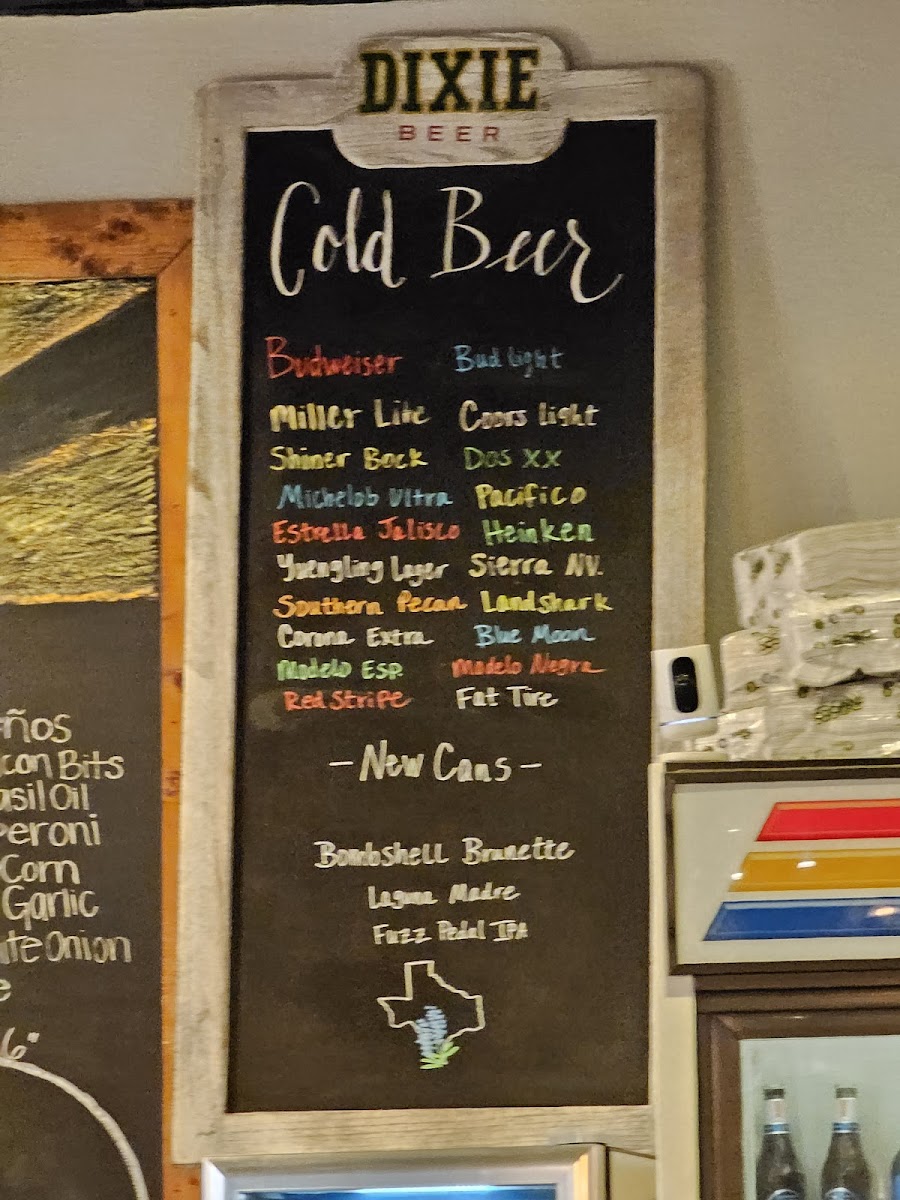 DIXIE
BEER
Cold Beer
Budweiser Bud light
Miller Lite Coors light
Shiner Bock Dos XX
Michelob Ultra Pacifico
Estrella Jalisco Heinken
Yuengling Lager Sierra NV.
Southern Pecan Landshark
Corona Extra Blue Moon
Modelo Esp. Modelo Negra
Red Stripe Fat Tire
- New Cans -
Bombshell Brunette
Laguna Madre
Fuzz Pedal IPA
eños
con Bits
asil Oil
peroni
Corn
Garlic
ite Onion
e
6"